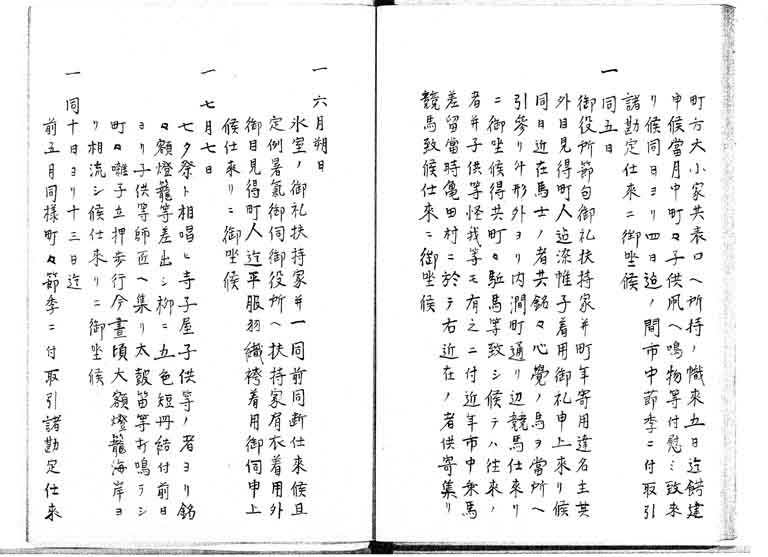 町方大小家共表口へ所持ノ幟来五日迄餝建
申候當月中町々子供凧へ鳴物等付慰ミ致来
リ候同日ヨリ四日迠ノ間市中節季ニ付取引
諸勘定仕来ニ御坐候
一 同五日
御役所節句御礼扶持家并町年寄用達名主其
外目見得町人迠染帷子着用御礼申上来リ候
同日近在馬士ノ者共銘々心覺ノ馬ヲ當所へ
引參リ外形外ヨリ内澗町通リ辺競馬仕来リ
ニ御坐候得共町々駈馬等致シ候テハ往来ノ
者并子供等怪我等モ有之ニ付近年市中乗馬
差留當時亀田村ニ於テ右近在ノ者供寄集リ
競馬致候仕来ニ御坐候
一 六月朔日
氷室ノ御礼扶持家并一同前同断仕来候且
定例暑氣御伺御役所へ扶持家肩衣着用外
御目見得町人迠平服羽織袴着用御伺申上
候仕来リニ御坐候
一 七月七日
七夕祭ト相唱ヒ寺子屋子供等ノ者ヨリ銘
々額燈籠等差出シ柳ニ五色短冊結付前日
ヨリ子供等師匠へ集リ太鼓笛等打鳴ラシ
町々囃子立押歩行今晝頃大額燈籠海岸ヨ
リ相流シ候仕来リニ御坐候
一 同十日ヨリ十三日迠
前五月同様町々節季ニ付取引諸勘定仕来